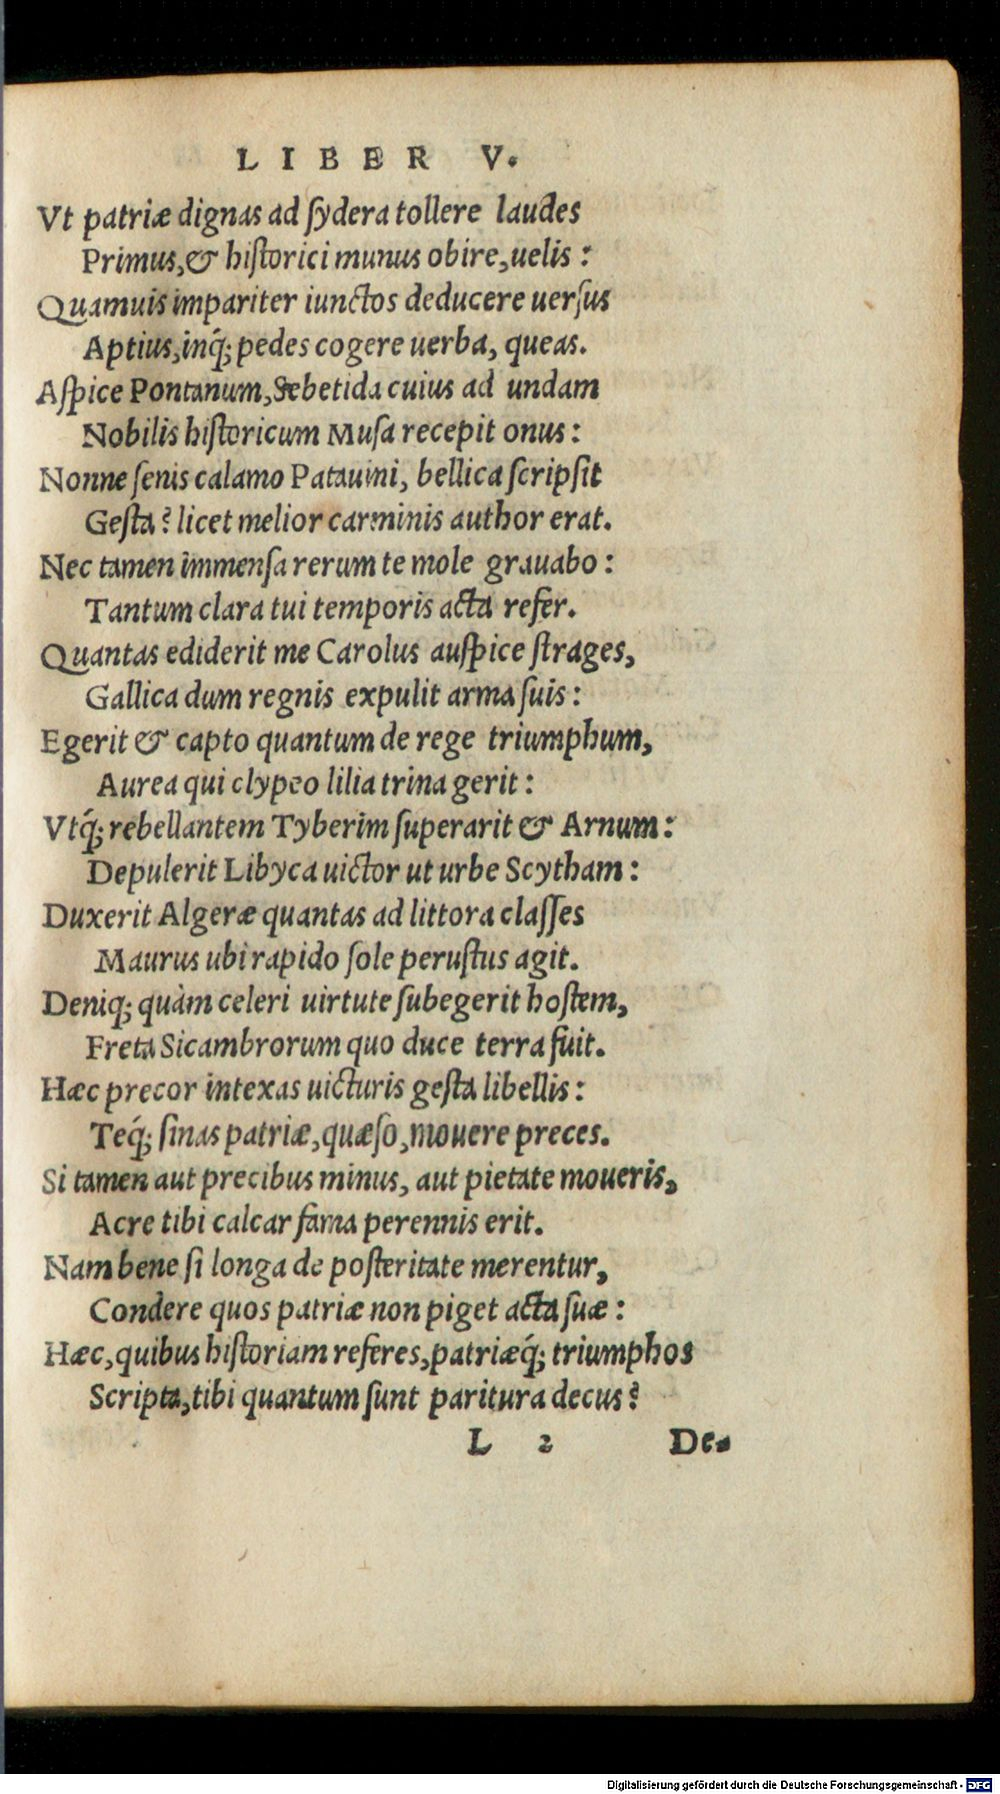 LIBER V.
Vt patriæ dignas ad ſydera tollere laudes
Primus, & hiſtorici munus obire, uelis:
Quamuis impariter iunctos deducere uerſus
Aptius, inq́; pedes cogere uerba, queas.
Aſpice Pontanum, Sebetida cuius ad undam
Nobilis hiſtoricum Muſa recepit onus:
Nonne ſenis calamo Patauini, bellica ſcripſit
Geſta? licet melior carminis author erat.
Nec tamen immenſa rerum te mole grauabo:
Tantum clara tui temporis acta refer.
Quantas ediderit me Carolus auſpice ſtrages,
Gallica dum regnis expulit arma ſuis:
Egerit & capto quantum de rege triumphum,
Aurea qui clypeo lilia trina gerit:
Vtq́; rebellantem Tyberim ſuperarit & Arnum:
Depulerit Libyca uictor ut urbe Scytham:
Duxerit Algeræ quantas ad littora claſſes
Maurus ubi rapido ſole peruſtus agit.
Deniq; quàm celeri uirtute ſubegerit hoſtem,
Freta Sicambrorum quo duce terra fuit.
Hæc precor intexas uicturis geſta libellis:
Teq́; ſinas patriæ, quæſo, mouere preces.
Si tamen aut precibus minus, aut pietate moueris,
Acre tibi calcar fama perennis erit.
Nam bene ſi longa de poſteritate merentur,
Condere quos patriæ non piget acta ſuæ:
Hæc, quibus hiſtoriam referes, patriæq́; triumphos
Scripta, tibi quantum ſunt paritura decus?
L 2 De-
Digitalisierung gefördert durch die Deutsche Forschungsgemeinschaft - DFG